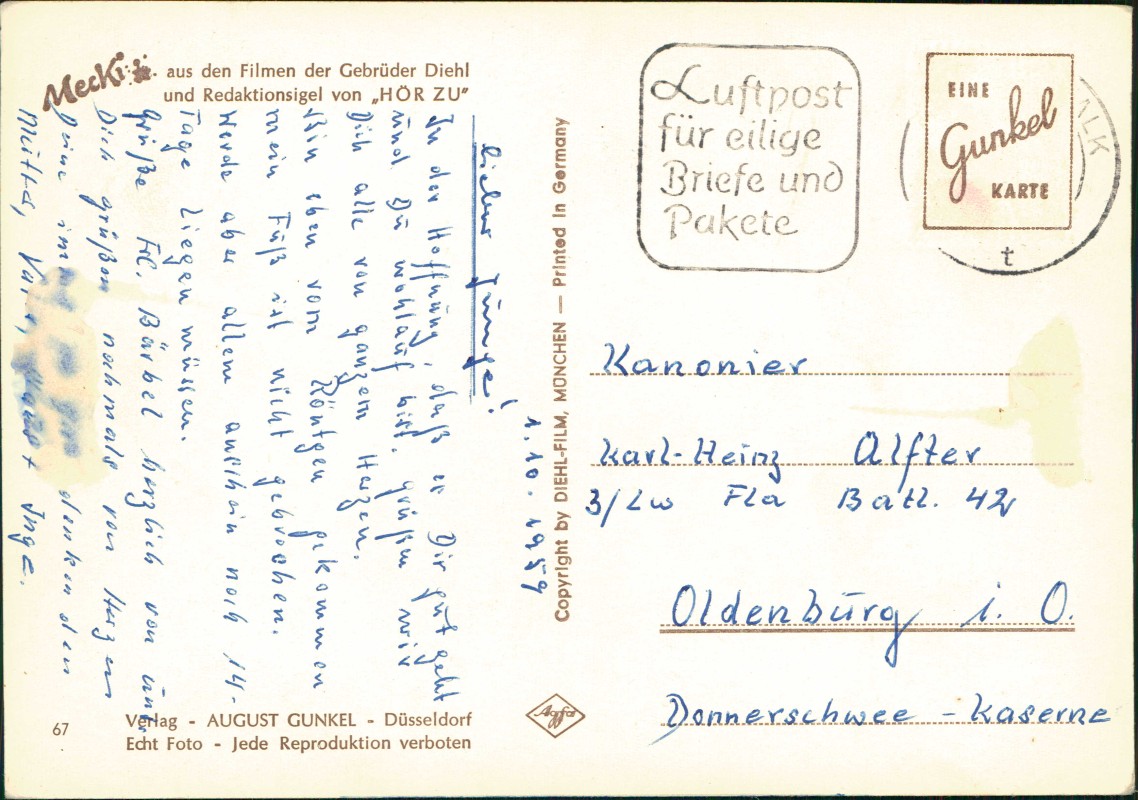 Mecki aus den Filmen der Gebrüder Diehl
und Redaktionsigel von „HÖR ZU"
1.10.1959
Lieber Junge!
In der Hoffnung, daß es Dir gut geht
und Du wohlauf bist. grüßen wir
Dich alle von ganzem Herzen.
Bin eben vom Röntgen gekommen
mein Fuß ist nicht gebrochen.
Werde aber allem anschein nach 14-
Tage Liegen müssen.
Grüße Frl. Bärbel herzlich von uns
Dich grüßen nochmals von Herzen
Deine denken den
Mutter, + Inge.
67
Verlag - AUGUST GUNKEL - Düsseldorf
Echt Foto - Jede Reproduktion verboten
Copyright by DIEHL-FILM, MÜNCHEN — Printed in Germany
Agfa
Luftpost
für eilige
Briefe und
Pakete
EINE
Gunkel
KARTE
ALK
t
Kanonier
Karl-Heinz Alfter
3/Lw Fla Batl. 42
Oldenburg i. O.
Donnerschwee - Kaserne